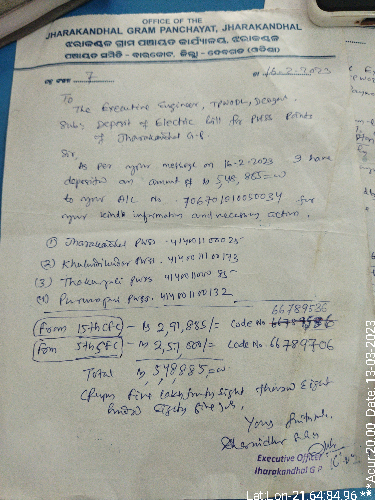 OFFICE OF THE
JHARAKANDHAL GRAM PANCHAYAT, JHARAKANDHAL
ଝରାକନ୍ଧଲ ଗ୍ରାମ ପଞ୍ଚାୟତ କାର୍ଯ୍ୟାଳୟ, ଝରାକନ୍ଧଲ
ପଞ୍ଚାୟତ ସମିତି - ବାରକୋଟ, ଜିଲ୍ଲା - ଦେବଗଡ (ଓଡ଼ିଶା)
7
16-2-2023
To
The Executive Engineer, TPWODL, Deogarh.
Sub: Deposit of Electric bill for PWSS Points
of Jharakandhal G.P.
Sir,
As per your message on 16-2-2023 I have
deposited an amount of Rs 5,48,885=00
to your A/C No. 706701010050034 for
your kind information and necessary action.
(1) Jharakandhal PWSS.
(2) PWSS.
(3) PWSS
(4) PWSS. 414001100132
66789586
From 15th CFC - Rs 2,91,885/= Code No
From 5th SFC - Rs 2,57,000/= Code No 66789706
Total Rs 5,48,885=00
(Rupees Five lakh forty eight thousand Eight
hundred Eighty five only.
Yours faithfully
Executive Officer
Jharakandhal G.P
Lat Lon-21 64:84.96 ***Acur:20.00, Date,13-03-2023